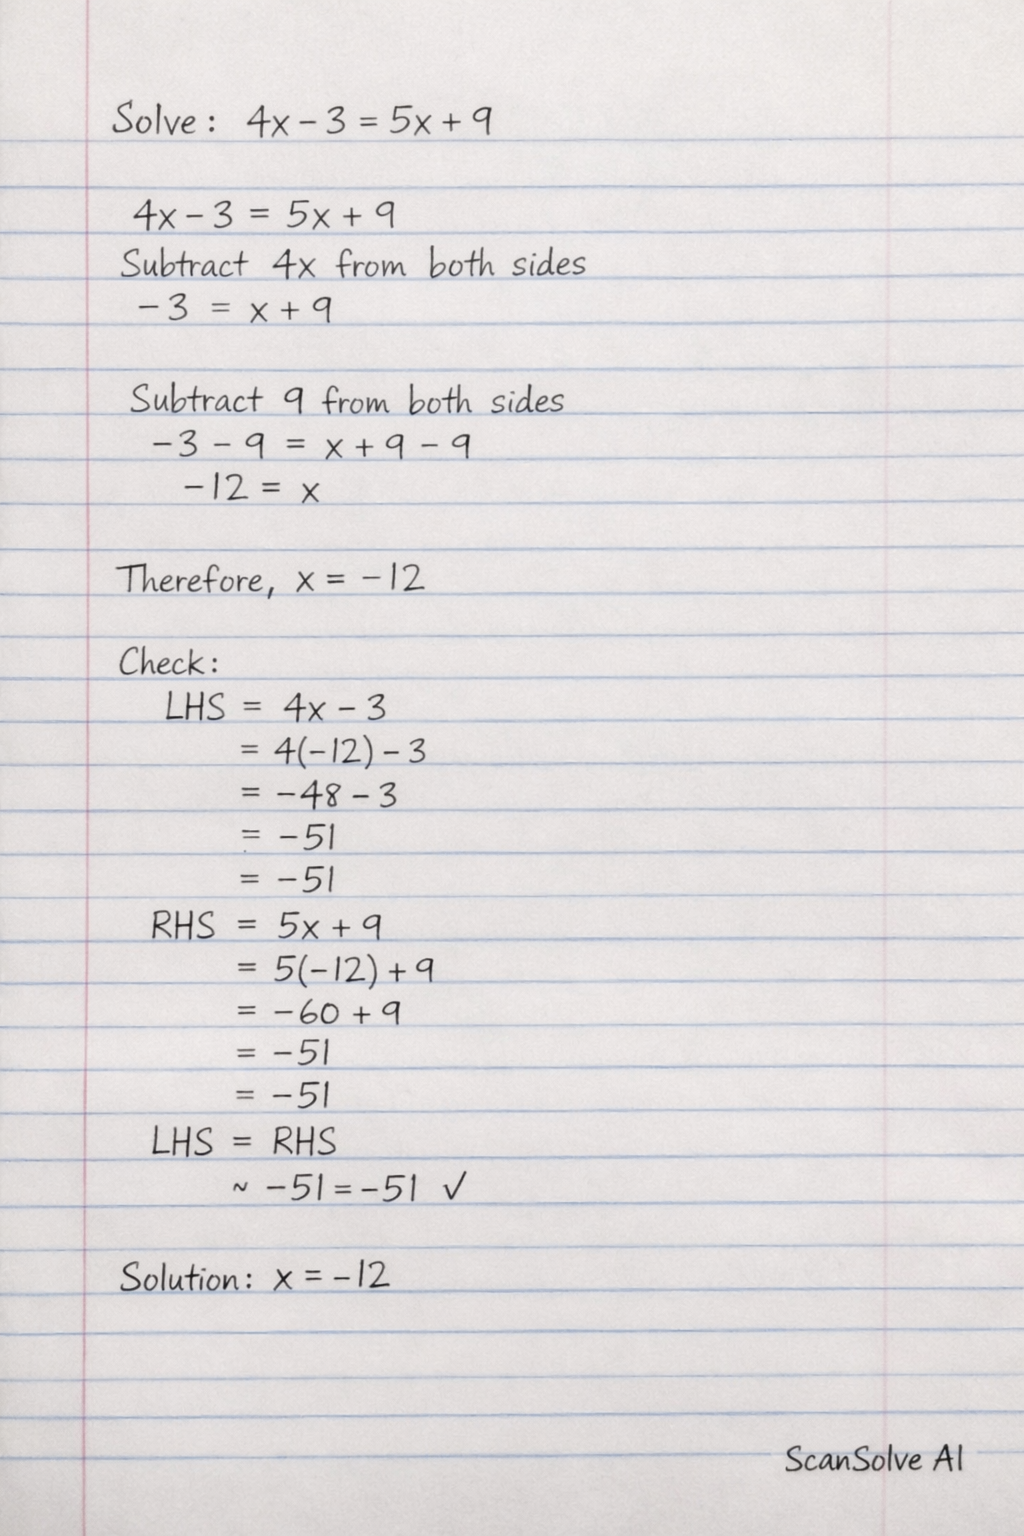 Solve: 4x - 3 = 5x + 9
4x - 3 = 5x + 9
Subtract 4x from both sides
-3 = x + 9
Subtract 9 from both sides
-3 - 9 = x + 9 - 9
-12 = x
Therefore, x = -12
Check:
LHS = 4x - 3
= 4(-12) - 3
= -48 - 3
= -51
= -51
RHS = 5x + 9
= 5(-12) + 9
= -60 + 9
= -51
= -51
LHS = RHS
~ -51 = -51 ✓
Solution: x = -12
ScanSolve AI